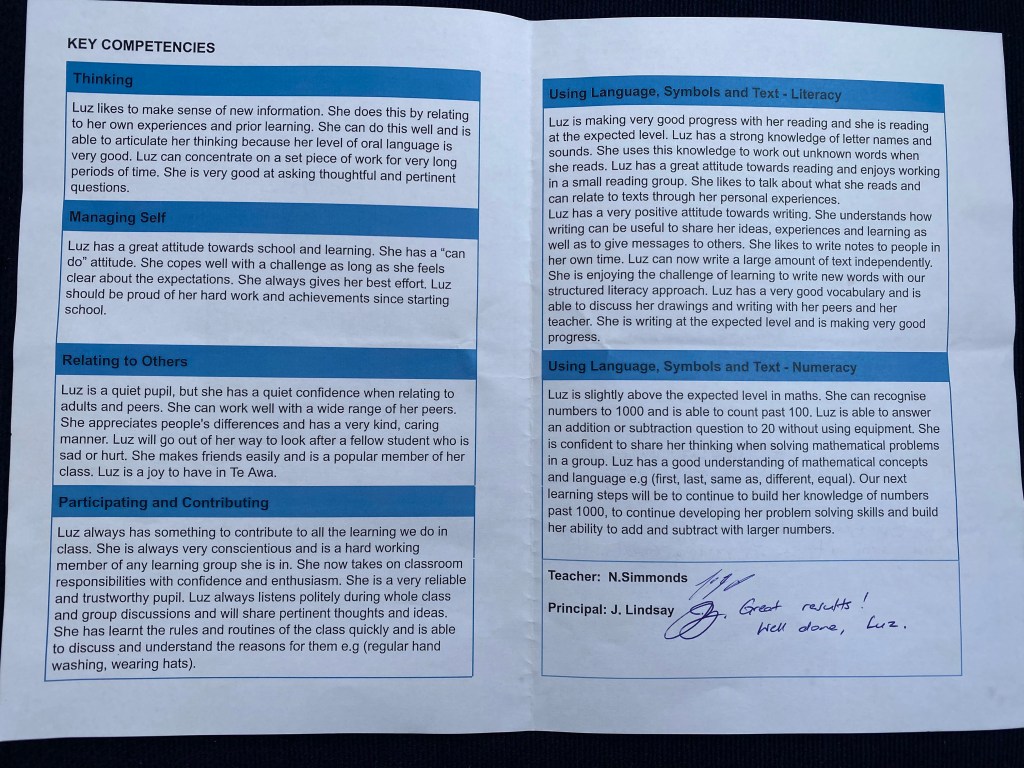 KEY COMPETENCIES
Thinking
Luz likes to make sense of new information. She does this by relating
to her own experiences and prior learning. She can do this well and is
able to articulate her thinking because her level of oral language is
very good. Luz can concentrate on a set piece of work for very long
periods of time. She is very good at asking thoughtful and pertinent
questions.
Managing Self
Luz has a great attitude towards school and learning. She has a “can
do” attitude. She copes well with a challenge as long as she feels
clear about the expectations. She always gives her best effort. Luz
should be proud of her hard work and achievements since starting
school.
Relating to Others
Luz is a quiet pupil, but she has a quiet confidence when relating to
adults and peers. She can work well with a wide range of her peers.
She appreciates people's differences and has a very kind, caring
manner. Luz will go out of her way to look after a fellow student who is
sad or hurt. She makes friends easily and is a popular member of her
class. Luz is a joy to have in Te Awa.
Participating and Contributing
Luz always has something to contribute to all the learning we do in
class. She is always very conscientious and is a hard working
member of any learning group she is in. She now takes on classroom
responsibilities with confidence and enthusiasm. She is a very reliable
and trustworthy pupil. Luz always listens politely during whole class
and group discussions and will share pertinent thoughts and ideas.
She has learnt the rules and routines of the class quickly and is able
to discuss and understand the reasons for them e.g (regular hand
washing, wearing hats).
Using Language, Symbols and Text - Literacy
Luz is making very good progress with her reading and she is reading
at the expected level. Luz has a strong knowledge of letter names and
sounds. She uses this knowledge to work out unknown words when
she reads. Luz has a great attitude towards reading and enjoys working
in a small reading group. She likes to talk about what she reads and
can relate to texts through her personal experiences.
Luz has a very positive attitude towards writing. She understands how
writing can be useful to share her ideas, experiences and learning as
well as to give messages to others. She likes to write notes to people in
her own time. Luz can now write a large amount of text independently.
She is enjoying the challenge of learning to write new words with our
structured literacy approach. Luz has a very good vocabulary and is
able to discuss her drawings and writing with her peers and her
teacher. She is writing at the expected level and is making very good
progress.
Using Language, Symbols and Text - Numeracy
Luz is slightly above the expected level in maths. She can recognise
numbers to 1000 and is able to count past 100. Luz is able to answer
an addition or subtraction question to 20 without using equipment. She
is confident to share her thinking when solving mathematical problems
in a group. Luz has a good understanding of mathematical concepts
and language e.g (first, last, same as, different, equal). Our next
learning steps will be to continue to build her knowledge of numbers
past 1000, to continue developing her problem solving skills and build
her ability to add and subtract with larger numbers.
Teacher: N.Simmonds
Principal: J. Lindsay
Great results!
Well done, Luz.